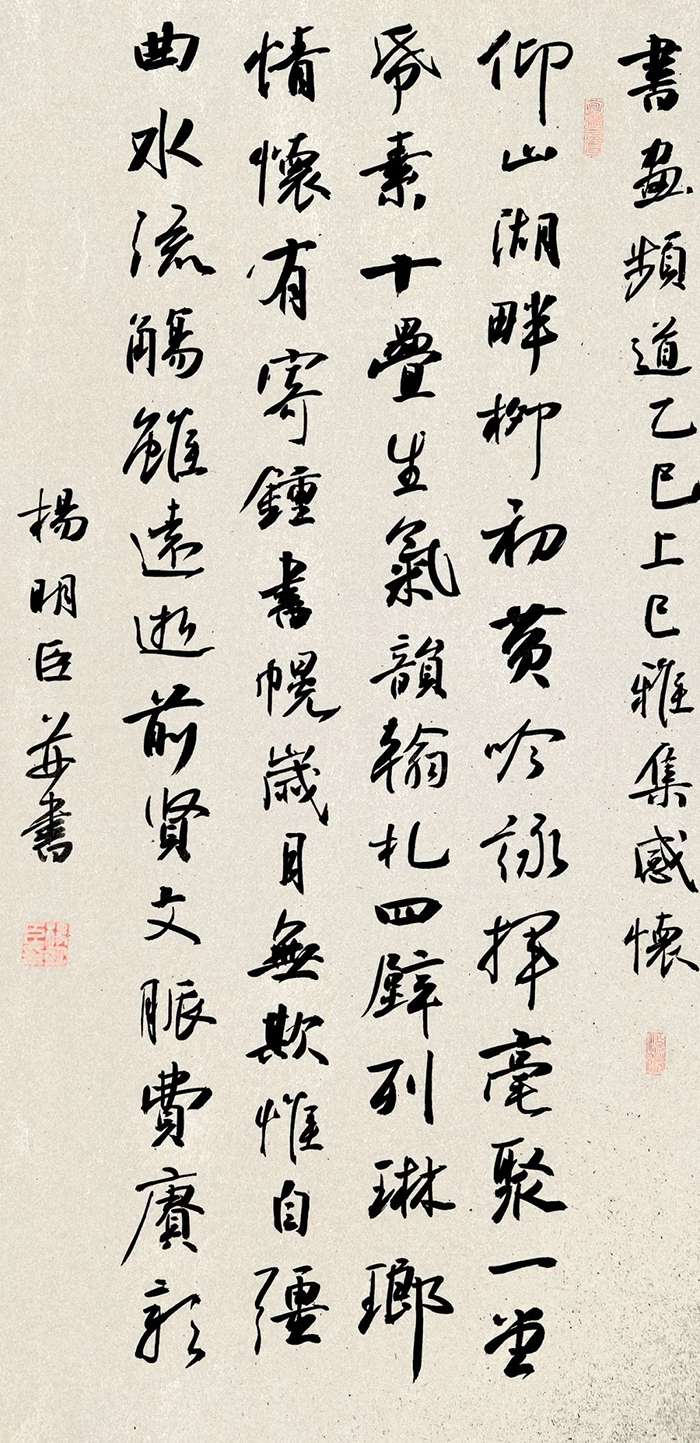 書畫頻道乙巳上巳雅集感懷
仰山湖畔柳初黄吟詠揮毫聚一堂
帋素十疊生氣韻翰札四壁列琳瑯
情懷有寄鍾書幌歲月無欺惟自彊
曲水流觴雖遠逝前賢文脈費賡
楊明臣并書